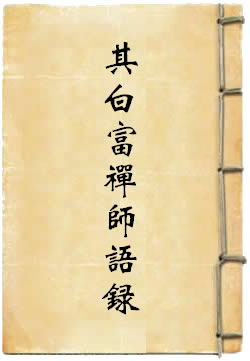 其白富禪師語録